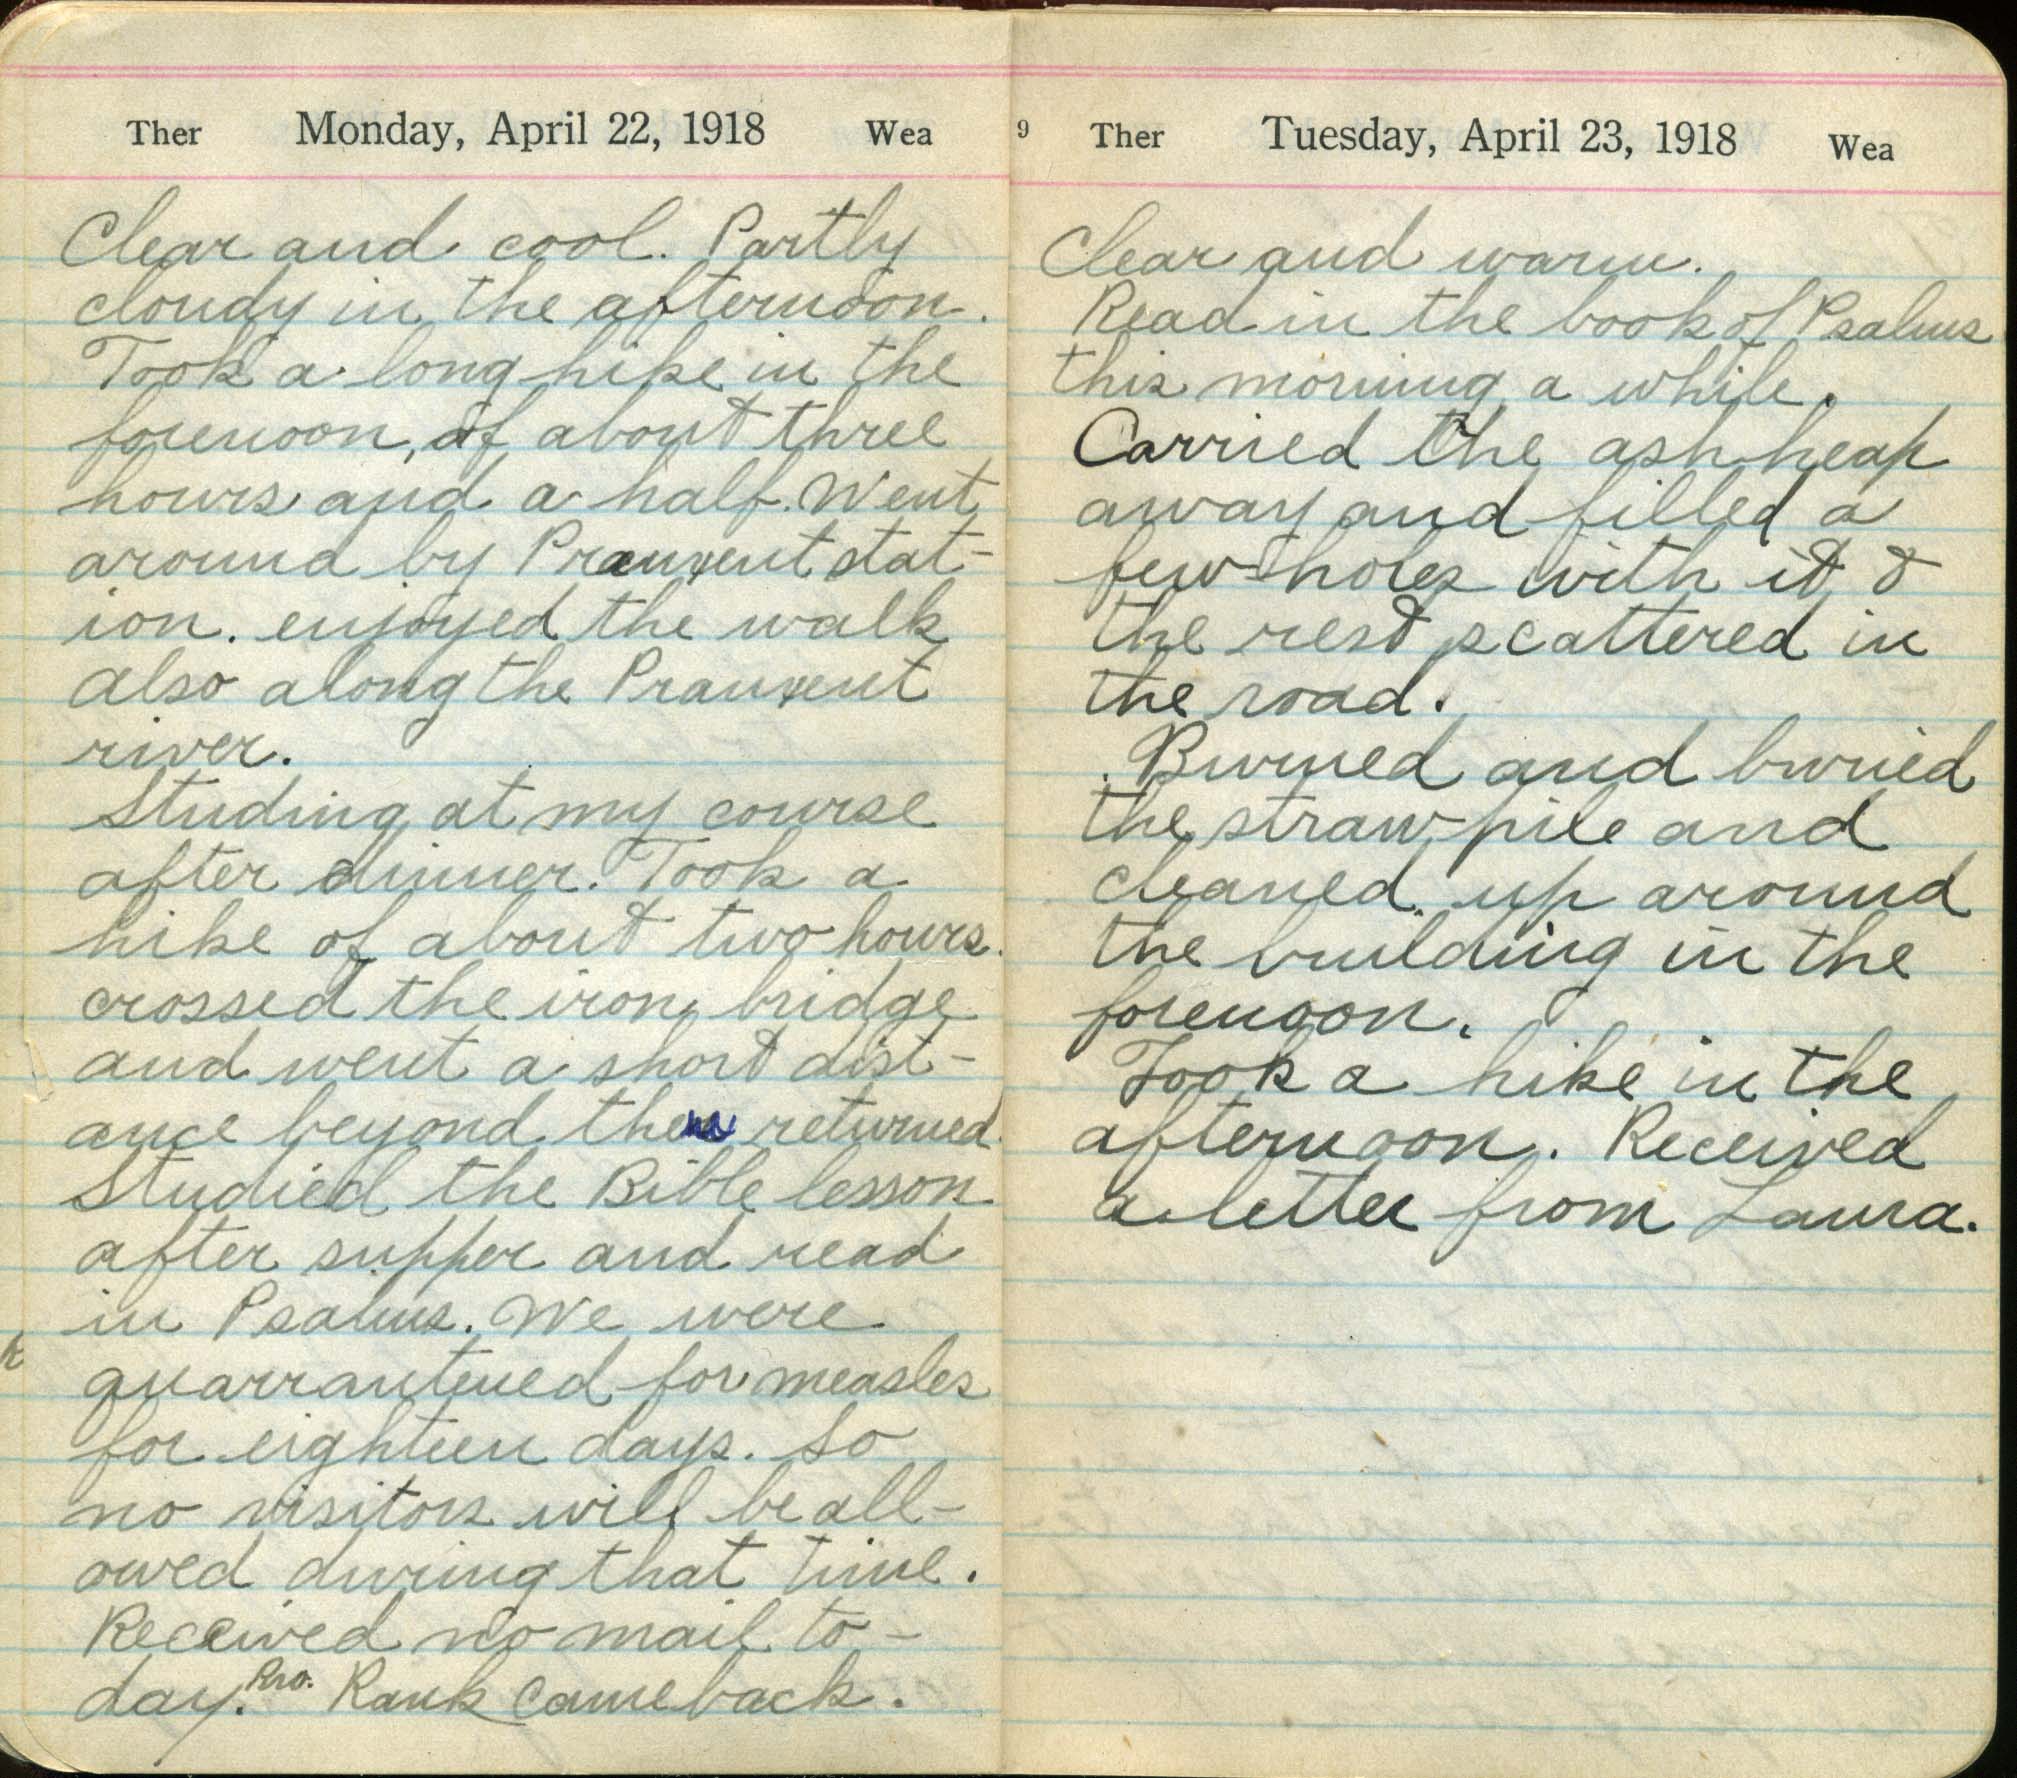 Ther Monday, April 22, 1918 Wea
Clear and cool. Partly
cloudy in the afternoon.
Took a long hike in the
forenoon, of about three
hours and a half. Went
around by stat-
ion. enjoyed the walk
also along the
river.
Studing at my course
after dinner. Took a
hike of about two hours.
crossed the iron bridge
and went a short dist-
ance beyond then returned.
Studied the Bible lesson
after supper and read
in Psalms. We were
quarrantened for measles
for eighteen days. So
no visitors will be all-
owed during that time.
Received no mail to-
day. Bro. Rank came back.
9 Ther Tuesday, April 23, 1918 Wea
Clear and warm.
Read in the book of Psalms
this morning a while.
Carried the ash heap
away and filled a
few holes with it &
the rest scattered in
the road.
Burned and buried
the straw-pile and
cleaned up around
the building in the
forenoon.
Took a hike in the
afternoon. Received
a letter from Laura.